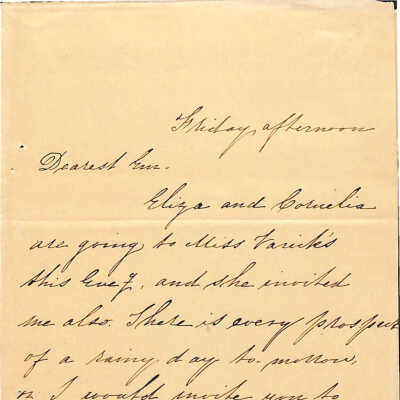 Friday afternoon
Dearest Em.
Eliza and Cornelia
are going to Miss Varick's
this Eve'g, and she invited
me also. There is every prospect
of a rainy day to-morrow,
I would invite you to